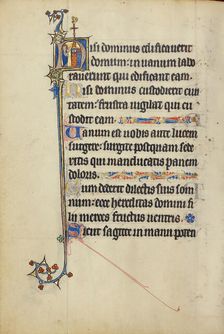 Nisi dominus edificaverit
domum: in vanum labo
raverunt qui edificant eam
Nisi dominus custodierit civi
tatem: frustra vigilat qui cu
stodit eam
Vanum est vobis ante lucem
surgere: surgite postquam sed
eritis qui manducatis panem
doloris.
Cum dederit dilectis suis som
num: ecce hereditas domini fi
lii merces fructus ventris.
Sicut sagitte in manu poten